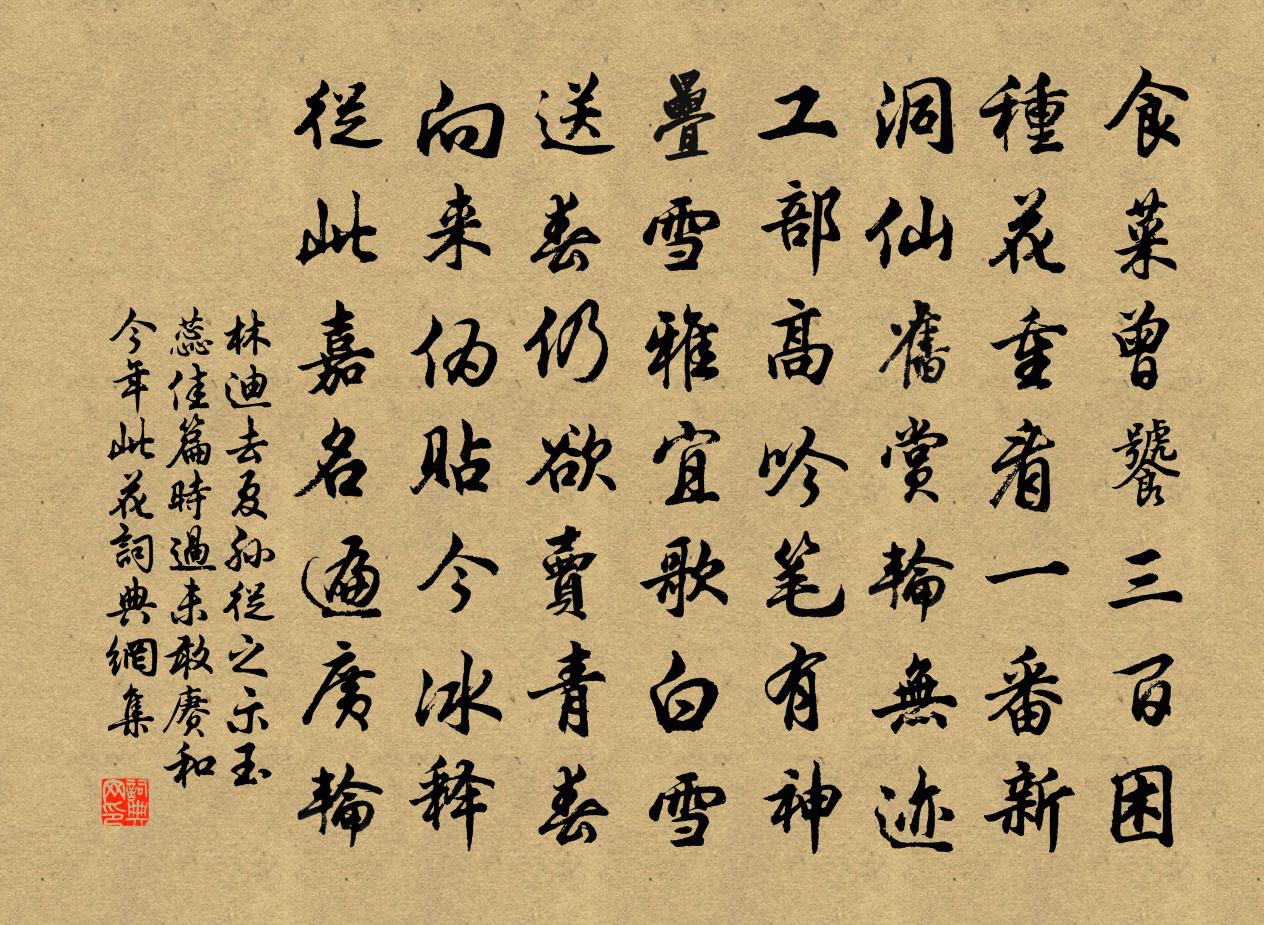 食菜曾饕三百困
種花重看一番新
洞仙舊賞輪無迹
工部高吟笔有神
疊雪雅宜歌白雪
送春仍欲賣青春
向来偽貼今冰释
從此嘉名遍廣輪
林迪去夏孙從之示玉
蕊佳篇時過未敢赓和
今年此花詞典網集
詞典网印